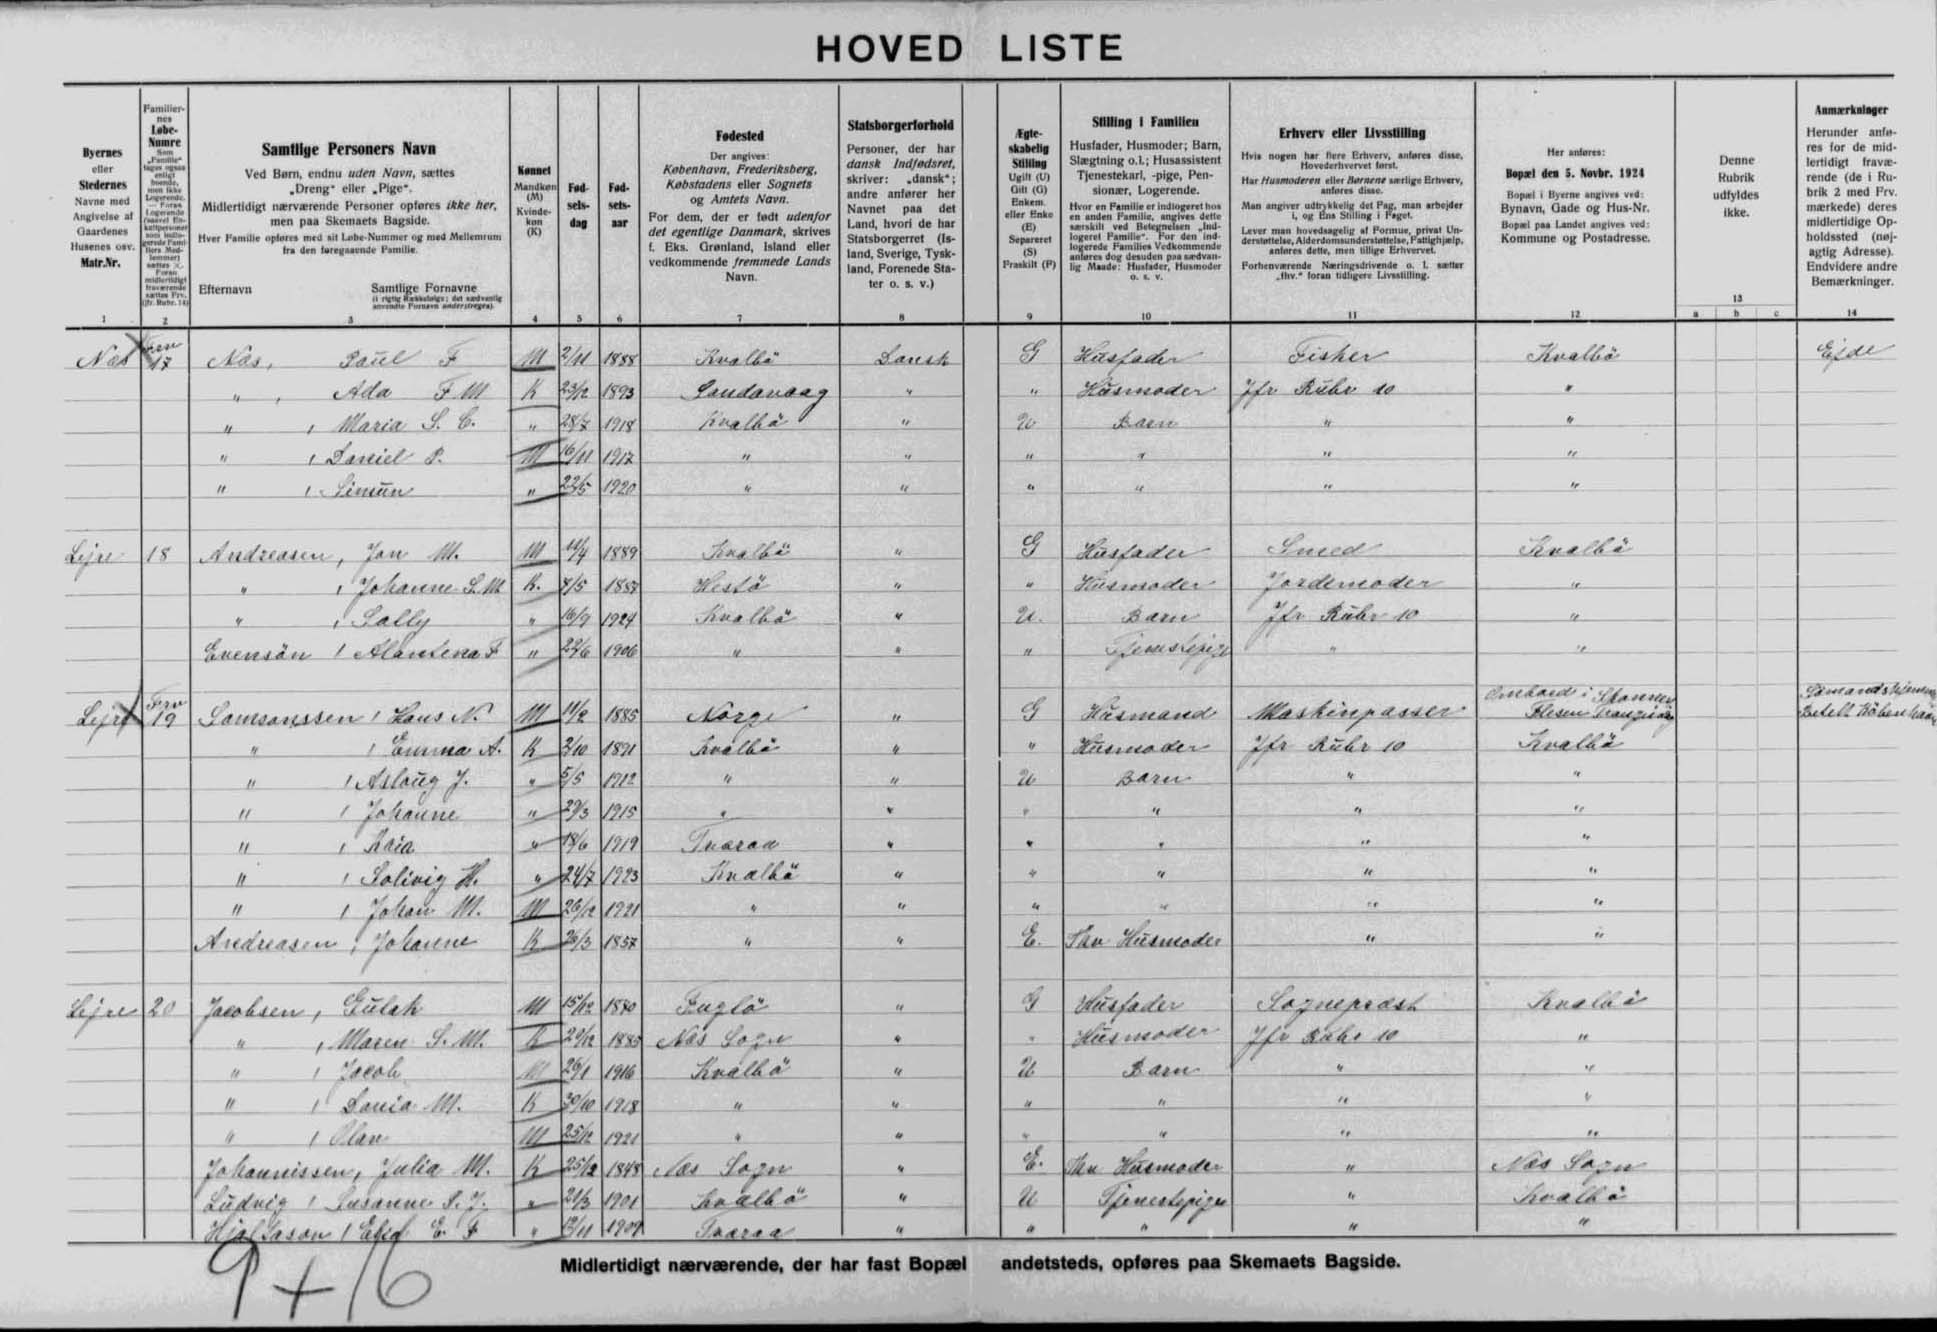 HOVED LISTE
Byernes
eller
Stedernes
Navne med
Angivelse af
Gaardenes
Husenes osv.
Matr.Nr.
1
Familier-
nes
Løbe-
Numre
Som
„Familie“
tages ogsaa
enligt
boende,
men ikke
Logerende.
2
Samtlige Personers Navn
Ved Børn, endnu uden Navn, sættes
„Dreng“ eller „Pige“.
Midlertidigt nærværende Personer opføres ikke her,
men paa Skemaets Bagside.
Hver Familie opføres med sit Løbe-Nummer og med Mellemrum
fra den foregaaende Familie.
Efternavn Samtlige Fornavne
(i rigtig Rækkefølge; det sædvanlig
anvendte Fornavn understreges).
3
Kønnet
Mandkøn
(M)
Kvinde-
køn
(K)
4
Fød-
sels-
dag
5
Fød-
sels-
aar
6
Fødested
Der angives:
København, Frederiksberg,
Købstadens eller Sognets
og Amtets Navn.
For dem, der er født udenfor
det egentlige Danmark, skrives
f. Eks. Grønland, Island eller
vedkommende fremmede Lands
Navn.
7
Statsborgerforhold
Personer, der har
dansk Indfødsret,
skriver: „dansk“;
andre anfører her
Navnet paa det
Land, hvori de har
Statsborgerret (Is-
land, Sverige, Tysk-
land, Forenede Sta-
ter o. s. v.)
8
Ægte-
skabelig
Stilling
Ugift (U)
Gift (G)
Enkem.
eller Enke
(E)
Separeret
(S)
Fraskilt (F)
9
Stilling i Familien
Husfader, Husmoder; Barn,
Slægtning o.l.; Husassistent
Tjenestekarl, -pige, Pen-
sionær, Logerende.
Hvor en Familie er indlogeret hos
en anden Familie, angives dette
særskilt ved Betegnelsen „Ind-
logeret Familie“. For den ind-
logerede Families Vedkommende
anføres dog desuden paa sædvan-
lig Maade: Husfader, Husmoder
o. s. v.
10
Erhverv eller Livsstilling
Hvis nogen har flere Erhverv, anføres disse,
Hovederhvervet først.
Har Husmoderen eller Børnene særlige Erhverv,
anføres disse.
Man angiver udtrykkelig det Fag, man arbejder
i, og Ens Stilling i Faget.
Lever man hovedsagelig af Formue, privat Un-
derstøttelse, Alderdomsunderstøttelse, Fattighjælp,
anføres dette, men tillige Erhvervet.
Forhenværende Næringsdrivende o. l. sætter
„fhv.“ foran tidligere Livsstilling.
11
Her anføres:
Bopæl den 5. Novbr. 1924
Bopæl i Byerne angives ved:
Bynavn, Gade og Hus-Nr.
Bopæl paa Landet angives ved:
Kommune og Postadresse.
12
Denne
Rubrik
udfyldes
ikke.
13
a b c
Anmærkninger
Herunder anfø-
res for de mid-
lertidigt fravæ-
rende (de i Ru-
brik 2 med Frv.
mærkede) deres
midlertidige Op-
holdssted (nøj-
agtig Adresse).
Endvidere andre
Bemærkninger.
14
Næs Frv 17 Næs, Paul F M 2/11 1888 Kvalbö Dansk G Husfader Fisker Kvalbö Ejde
" , Ada F M K 23/12 1893 Sandavaag " " Husmoder Jfr Rubr 10 "
" , Maria S. C. " 28/7 1918 Kvalbö " U Barn " "
" , Daniel P. M 16/11 1917 " " " " " "
" , Simun " 22/5 1920 " " " " " "
Lejre 18 Andreasen, Jan M. M 11/4 1889 Kvalbö " G Husfader Smed Kvalbö
" , Johanne S. M K. 8/5 1888 Hestö " " Husmoder Jordemoder "
" , Sally " 16/9 1924 Kvalbö " U. Barn Jfr Rubr 10 "
Evensön , F " 22/6 1906 " " " Tjenestepige " "
Lejre Frv 19 Samsonssen, Hans N. M 11/2 1885 Norge " G Husmand Maskinpasser Ombord i Flesen
" , Emma A. K 2/10 1891 Kvalbö " " Husmoder Jfr Rubr 10 Kvalbö
" , Aslaug J. " 5/5 1912 " " U Barn " "
" , Johanne " 29/3 1915 " " " " " "
" , Kaia " 18/6 1919 Tvaraa " " " " "
" , Solivig H. " 24/7 1923 Kvalbö " " " " "
" , Johan M. M 26/12 1921 " " " " " "
Andreasen, Johanne K 26/3 1857 " " E. Fhv Husmoder " "
Lejre 20 Jacobsen, Gutah M 15/12 1880 Fuglö " G Husfader Sognepræst Kvalbö
" , Maren S. M. K 29/12 1885 Næs Sogn " " Husmoder Jfr Rubr 10 "
" , Jacob M 26/1 1916 Kvalbö " U Barn " "
" , Dania M. K 30/10 1918 " " " " " "
" , Olav M 25/12 1921 " " " " " "
Johannissen, Julia M. K 25/12 1848 Næs Sogn " E. Fhv Husmoder " Næs Sogn
Ludvig , Susanne S. J. " 21/3 1901 Kvalbö " U Tjenestepige " Kvalbö
Hjaltason , E. F " 12/11 1909 Tvaraa " " " " "
9 + 16
Midlertidigt nærværende, der har fast Bopæl andetsteds, opføres paa Skemaets Bagside.